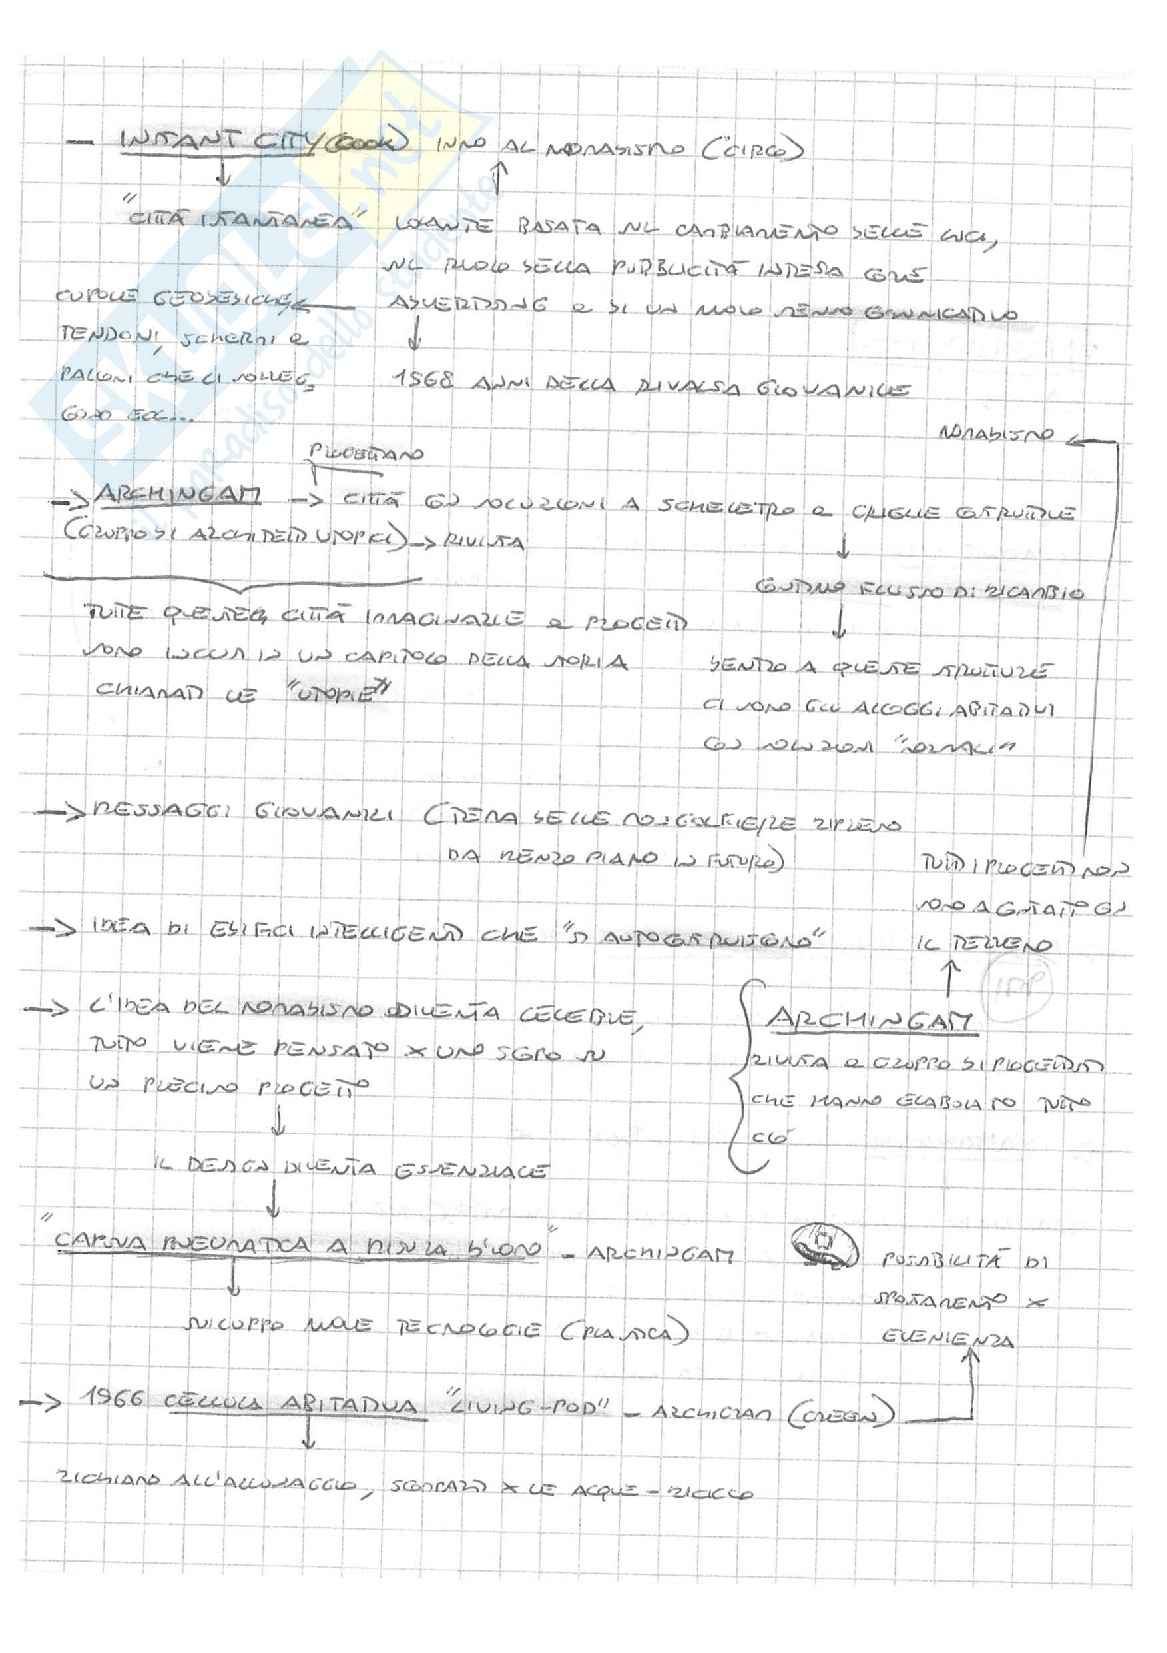 - INSTANT CITY (COOK) INNO AL NOMADISMO (CIRCO)
"CITTÀ ISTANTANEA" BASATA SUL CAMBIAMENTO DELLE LUCI,
SUL RUOLO DELLA PUBBLICITÀ INTESA COME
ADVERTISING E DI UN RUOLO COMUNICATIVO
CUPOLE GEODESICHE,
TENDONI, SCHERMI E
PALLONI CHE CI SOLLEG.
GONO ECC...
1968 ANNI DELLA RIVALSA GIOVANILE
NOMADISMO
PROGETTANO
-> ARCHINGAM -> CITTÀ CON SOLUZIONI A SCHELETRO E GRIGLIE COSTRUTTIVE
(GRUPPO DI ARCHITETTI UTOPICI) -> RIVISTA
CONTINUO FLUSSO DI RICAMBIO
TUTTE QUESTE CITTÀ IMMAGINARIE E PROGETTI
SONO INCLUSI IN UN CAPITOLO DELLA STORIA
CHIAMATI LE "UTOPIE"
DENTRO A QUESTE STRUTTURE
CI SONO GLI ALLOGGI ABITATIVI
CON SOLUZIONI "NORMALI"
-> MESSAGGI GIOVANILI (TEMA DELLE MONGOLFIERE RIPRESO
DA RENZO PIANO IN FUTURO)
TUTTI I PROGETTI NON
SONO A CONTATTO CON
IL TERRENO
-> IDEA DI EDIFICI INTELLIGENTI CHE "SI AUTOCOSTRUISCONO"
-> L'IDEA DEL NOMADISMO DIVENTA CELEBRE,
TUTTO VIENE PENSATO X UNO SCOPO SU
UN PRECISO PROGETTO
IMP
ARCHINGAM
RIVISTA E GRUPPO DI PROGETTISTI
CHE HANNO ELABORATO TUTTO
CIÒ
IL DESIGN DIVENTA ESSENZIALE
"CAPSULA PNEUMATICA A MISURA D'UOMO" - ARCHINGAM
SVILUPPO NUOVE TECNOLOGIE (PLASTICA)
POSSIBILITÀ DI
SPOSTAMENTO X
EVENIENZA
-> 1966 CELLULA ABITATIVA "LIVING-POD" - ARCHIGRAM (GREEN)
RICHIAMO ALL'ALLUNAGGIO, SCOMPARTI X LE ACQUE - RICICLO